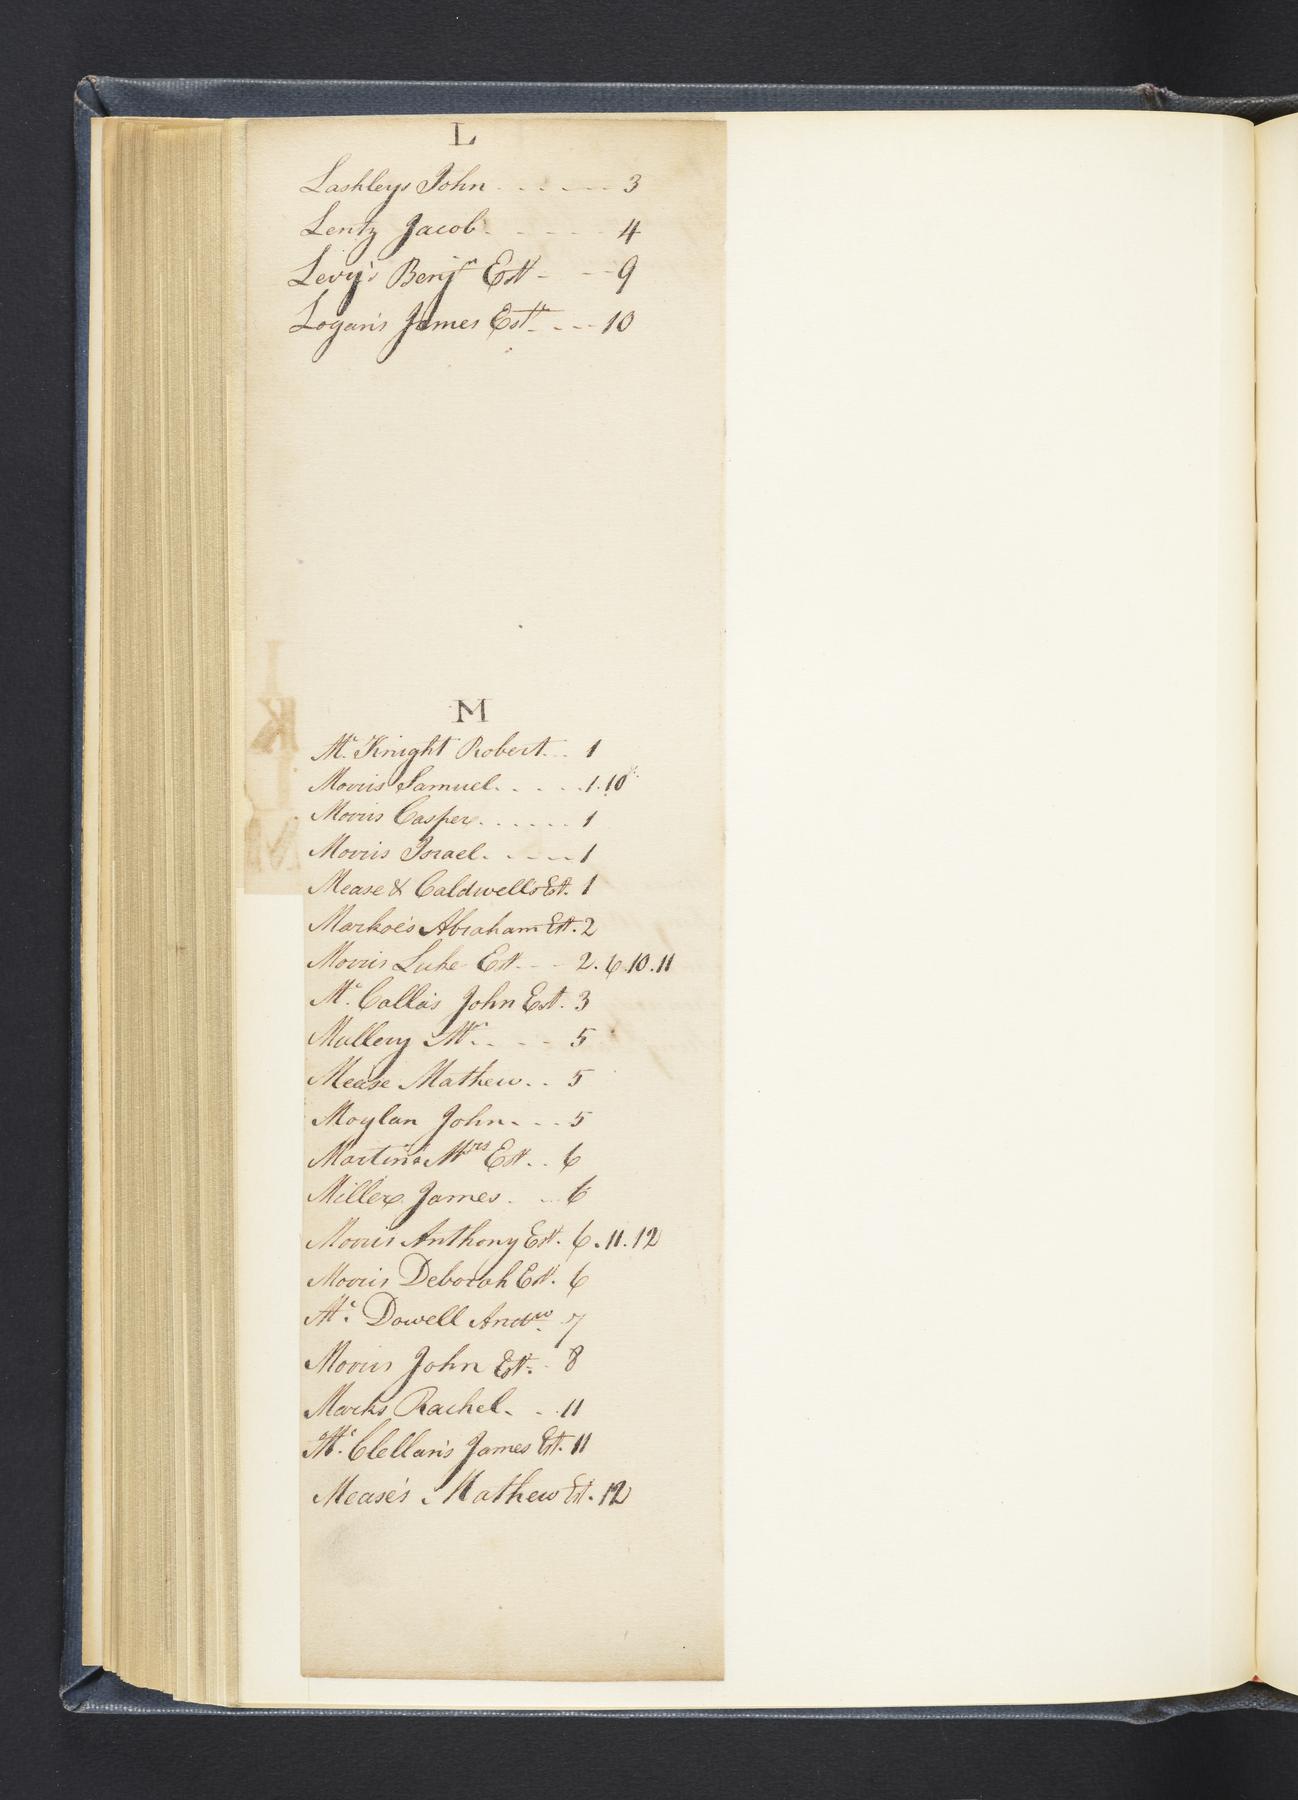 L
Lashleys John . . . . . . 3
Lentz Jacob . . . . . . 4
Levy's Benjn Estt - - - 9
Logan's James Estt - - - - 10
M
Mc Knight Robert . . . 1
Morris Samuel . . . . . 1.10
Morris Casper . . . . . . 1
Morris Israel . . . . . 1
Mease & Caldwells Est. 1
Markoe's Abraham Est. 2
Morris Luke Est. - - 2.6.10.11
Mc Calla's John Est. 3
Mullery Mr . . . . 5
Mease Mathew . . 5
Moylan John . . . . 5
Martin's Mrs Est . . 6
Miller James . . . 6
Morris Anthony Est. 6.11.12
Morris Deborah Est. 6
Mc Dowell Andw 7
Morris John Est. . 8
Marks Rachel . . . 11
Mc Clellan's James Est. 11
Mease's Mathew Est. 12
I
K
L
M